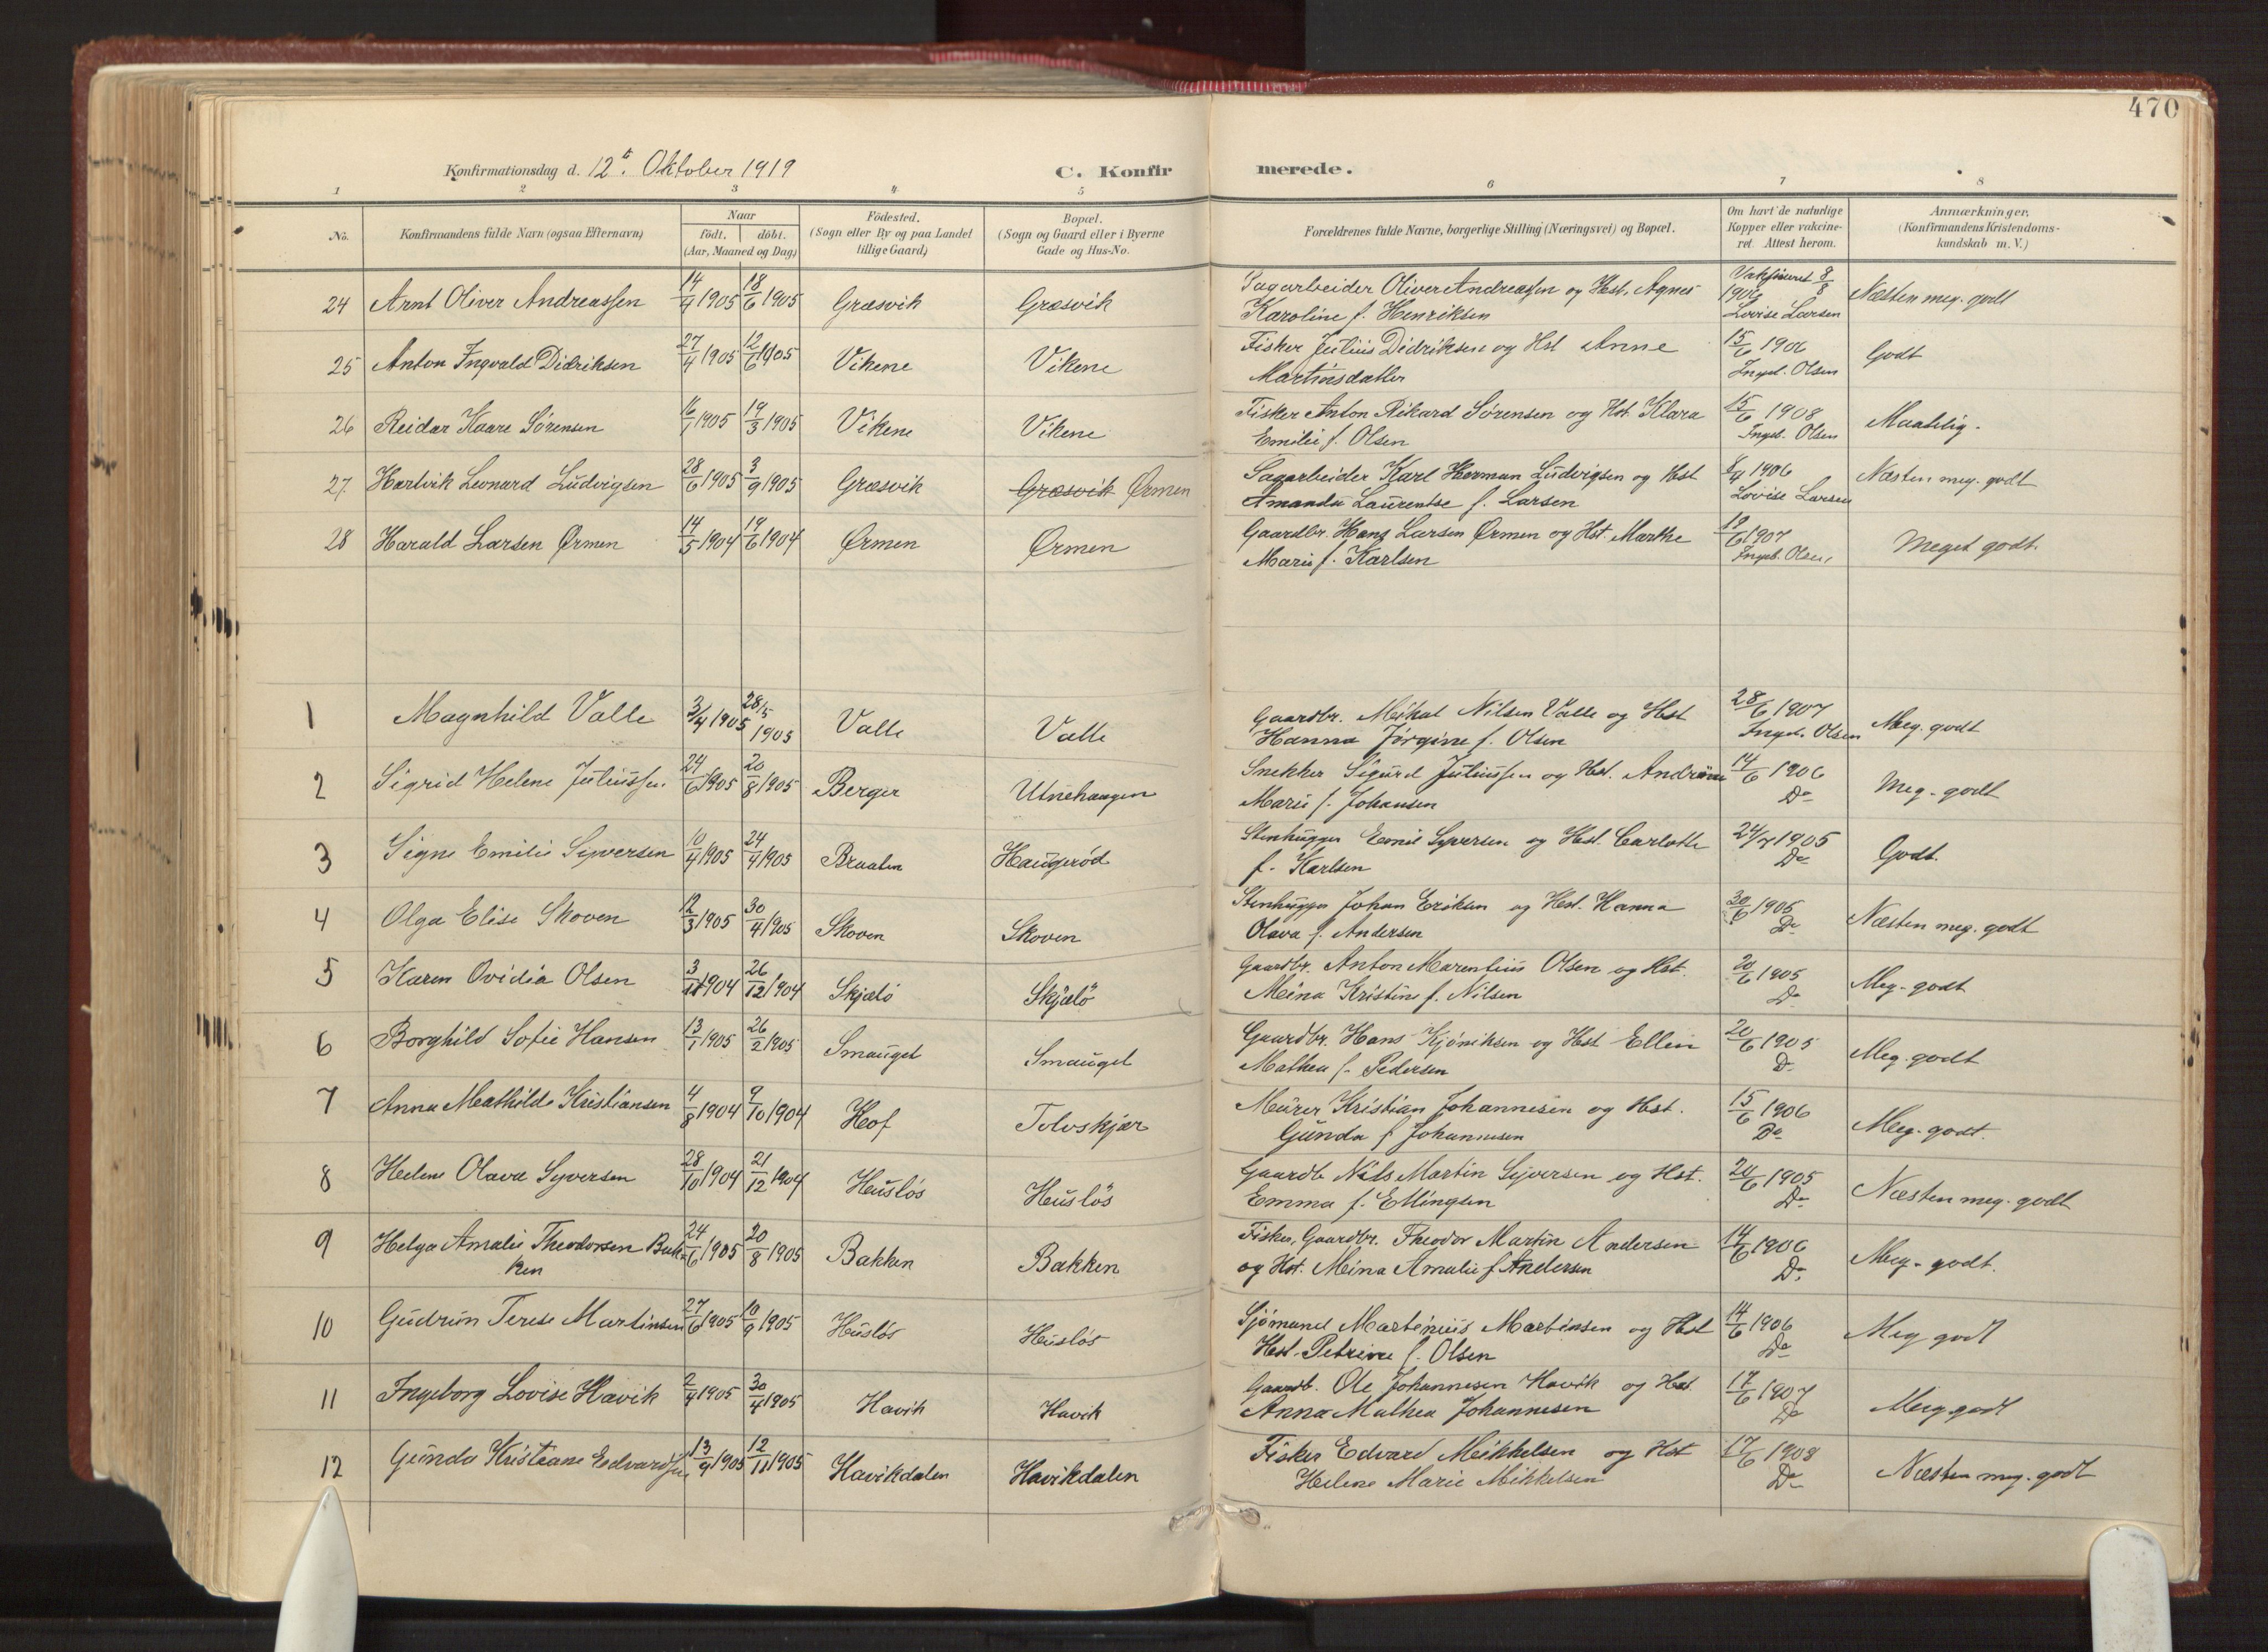 470
Konfirmationsdag d. 12te Oktober 1919 C. Konfirmerede.
1 2 3 4 5 6 7 8
No. Konfirmandens fulde Navn (ogsaa Efternavn) Naar født, døbt. (Aar, Maaned og Dag) Fødested. (Sogn eller By og paa Landet tillige Gaard) Bopæl. (Sogn og Gaard eller i Byerne Gade og Hus-No. Forældrenes fulde Navne, borgerlige Stilling (Næringsvei) og Bopæl. Om havt de naturlige Kopper eller vakcineret. Attest herom. Anmærkninger. (Konfirmandens Kristendomskundskab m. V.)
24 Arnt Oliver Andreassen 14/4 1905 18/6 1905 Græsvik Græsvik Sagarbeider Oliver Andreassen og Hst. Agnes 8/8 1906 Næsten meg. godt
Karoline f. Henriksen Lovise Larsen
25 Anton Ingvald Didriksen 27/4 1905 12/6 1905 Vikene Vikene Fisker Julius Didriksen og Hst Anne 15/6 1906 Godt
Martinsdatter Ingeb. Olsen
26 Reidar Kaare Sørensen 16/1 1905 19/3 1905 Vikene Vikene Fisker Anton Rikard Sørensen og Hst. Klara 15/6 1908 Maatelig.
Emilie f. Olsen Ingeb. Olsen
27. Hartvik Leonard Ludvigsen 28/6 1905 3/9 1905 Græsvik Græsvik Ørmen Sagarbeider Karl Herman Ludvigsen og Hst 8/4 1906 Næsten meg. godt
Amanda Laurentse f. Larsen Lovise Larsen
28 Harald Larsen Ørmen 14/5 1904 19/6 1904 Ørmen Ørmen Gaardbr. Hans Larsen Ørmen og Hst. Marthe 19/6 1907 Meget godt.
Marie f. Karlsen Ingeb. Olsen
1 Magnhild Valle 3/4 1905 28/5 1905 Valle Valle Gaardbr. Mikal Nilsen Valle og Hst 28/6 1907 Meg. godt
Hanna Jørgine f. Olsen Ingeb. Olsen
2 Sigrid Helene Juliussen 24/6 1905 20/8 1905 Berger Utnehaugen Snekker Sigurd Juliussen og Hst. Andrine 14/6 1906 Meg. godt
Marie f. Johansen Do
3 Signe Emilie Syversen 10/4 1905 24/4 1905 Braaten Haugerød Stenhugger Emil Syversen og Hst. Carlotte 24/7 1905 Godt.
f. Karlsen Do
4 Olga Elise Skoven 12/3 1905 30/4 1905 Skoven Skoven Stenhugger Johan Eriksen og Hst. Hanna 30/6 1905 Næsten meg. godt
Olava f. Andersen Do
5 Karen Ovidia Olsen 3/11 1904 26/12 1904 Skjælø Skjælø Gaardbr. Anton Marentius Olsen og Hst. 20/6 1905 Meg. godt
Meina Kristine f. Nilsen Do
6 Borghild Sofie Hansen 13/1 1905 26/2 1905 Smauget Smauget Gaardbr. Hans Kjøniksen og Hst Ellen 20/6 1905 Meg. godt
Mathea f. Pedersen Do
7 Anna Mathilde Kristiansen 4/8 1904 9/10 1904 Hof Toloskjær Murer Kristian Johannesen og Hst. 15/6 1906 Meg. godt.
Gunda f Johannesen Do
8 Helene Olava Syversen 28/10 1904 21/12 1904 Husløs Husløs Gaardb Nils Martin Syversen og Hst. 20/6 1905 Næsten meg. godt
Emma f. Ellingsen Do
9 Helga Amalie Theodorsen Bak- 24/6 1905 20/8 1905 Bakken Bakken Fisker, Gaardbr. Theodor Martin Andersen 14/6 1906 Meg. godt.
ken og Hst. Meina Amalie f Andersen Do
10 Gudrun Terese Martinsen 27/6 1905 10/9 1905 Husløs Husløs Sjömand Martinius Martinsen og Hst 14/6 1906 Meg godt
Hst. Petrine f. Olsen Do
11 Ingeborg Lovise Havik 2/4 1905 30/4 1905 Havik Havik Gaardb. Ole Johannesen Havik og Hst. 17/6 1907 Meg godt
Anna Mathea Johannesen Do
12 Gunda Kristiane Edvardsen 13/9 1905 12/11 1905 Havikdalen Havikdalen Fisker Edvard Mikkelsen og Hst 17/6 1908 Næsten meg. godt
Helene Marie Mikkelsen Do